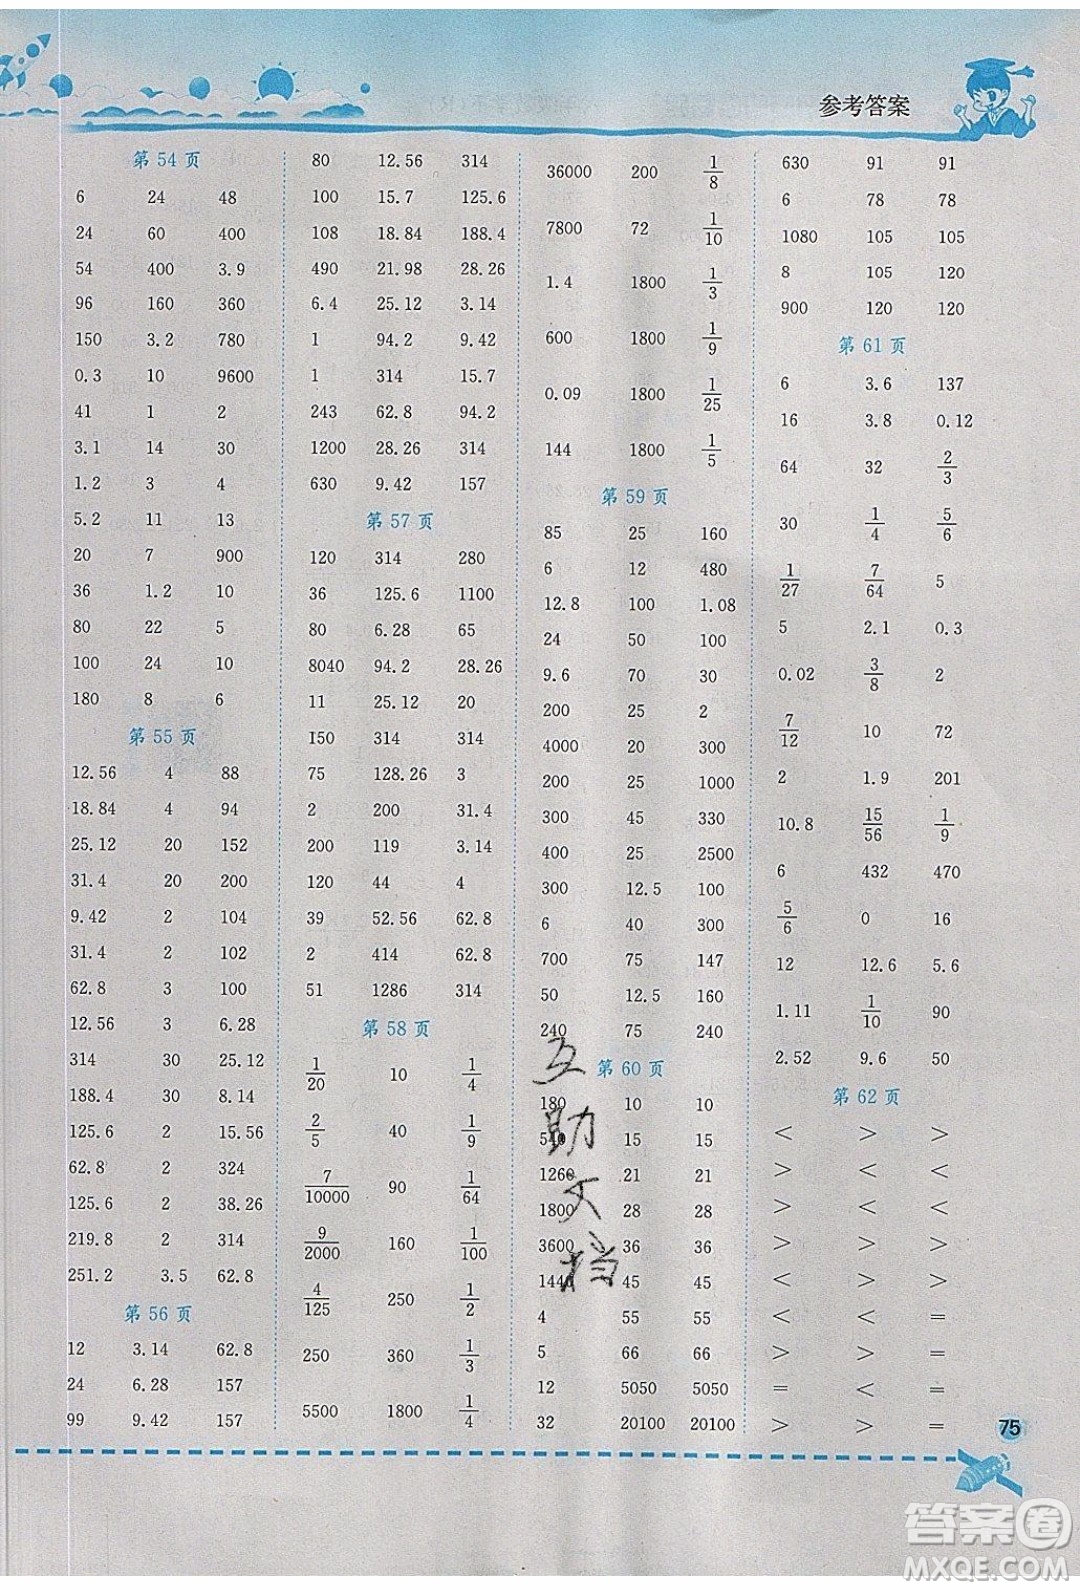 参考答案
第54页
6 24 48
24 60 400
54 400 3.9
96 160 360
150 3.2 780
0.3 10 9600
41 1 2
3.1 14 30
1.2 3 4
5.2 11 13
20 7 900
36 1.2 10
80 22 5
100 24 10
180 8 6
第55页
12.56 4 88
18.84 4 94
25.12 20 152
31.4 20 200
9.42 2 104
31.4 2 100
62.8 3 100
12.56 3 6.28
314 30 25.12
188.4 30 8.14
125.6 2 15.56
62.8 2 324
125.6 2 38.26
219.8 2 314
251.2 3.5 62.8
第56页
12 3.14 62.8
24 6.28 157
99 9.42 157
80 12.56 314
100 15.7 125.6
108 18.84 188.4
490 21.98 28.26
6.4 25.12 3.14
1 94.2 9.42
1 314 15.7
243 62.8 94.2
1200 28.26 314
630 9.42 157
第57页
120 314 280
36 125.6 1100
80 6.28 65
8040 94.2 28.26
11 25.12 20
150 314 314
75 128.26 3
2 200 31.4
200 119 3.14
120 44 4
39 52.56 62.8
2 414 62.8
51 1286 314
第58页
1/20 10 1/4
2/5 40 1/9
7/10000 90 1/64
9/2000 160 1/100
4/125 250 1/2
250 360 1/3
5500 1800 1/4
36000 200 1/8
7800 72 1/10
1.4 1800 1/3
600 1800 1/9
0.09 1800 1/25
144 1800 1/5
第59页
85 25 160
6 12 480
12.8 100 1.08
24 50 100
9.6 70 30
200 25 2
4000 20 300
200 25 1000
300 45 330
400 25 2500
300 12.5 100
6 40 300
700 75 147
50 12.5 160
240 75 240
第60页
180 10 10
540 15 15
1260 21 21
1800 28 28
3600 36 36
1440 45 45
4 55 55
5 66 66
12 5050 5050
32 20100 20100
互助文档
630 91 91
6 78 78
1080 105 105
8 105 120
900 120 120
第61页
6 3.6 137
16 3.8 0.12
64 32 2/3
30 1/4 5/6
1/27 7/64 5
5 2.1 0.3
0.02 3/8 2
7/12 10 72
2 1.9 201
10.8 15/56 1/9
6 432 470
5/6 0 16
12 12.6 5.6
1.11 1/10 90
2.52 9.6 50
第62页
< > >
> < <
> < <
> > >
< > >
< < =
> > =
= < =
> > =
75
答案圈
MXQE.COM